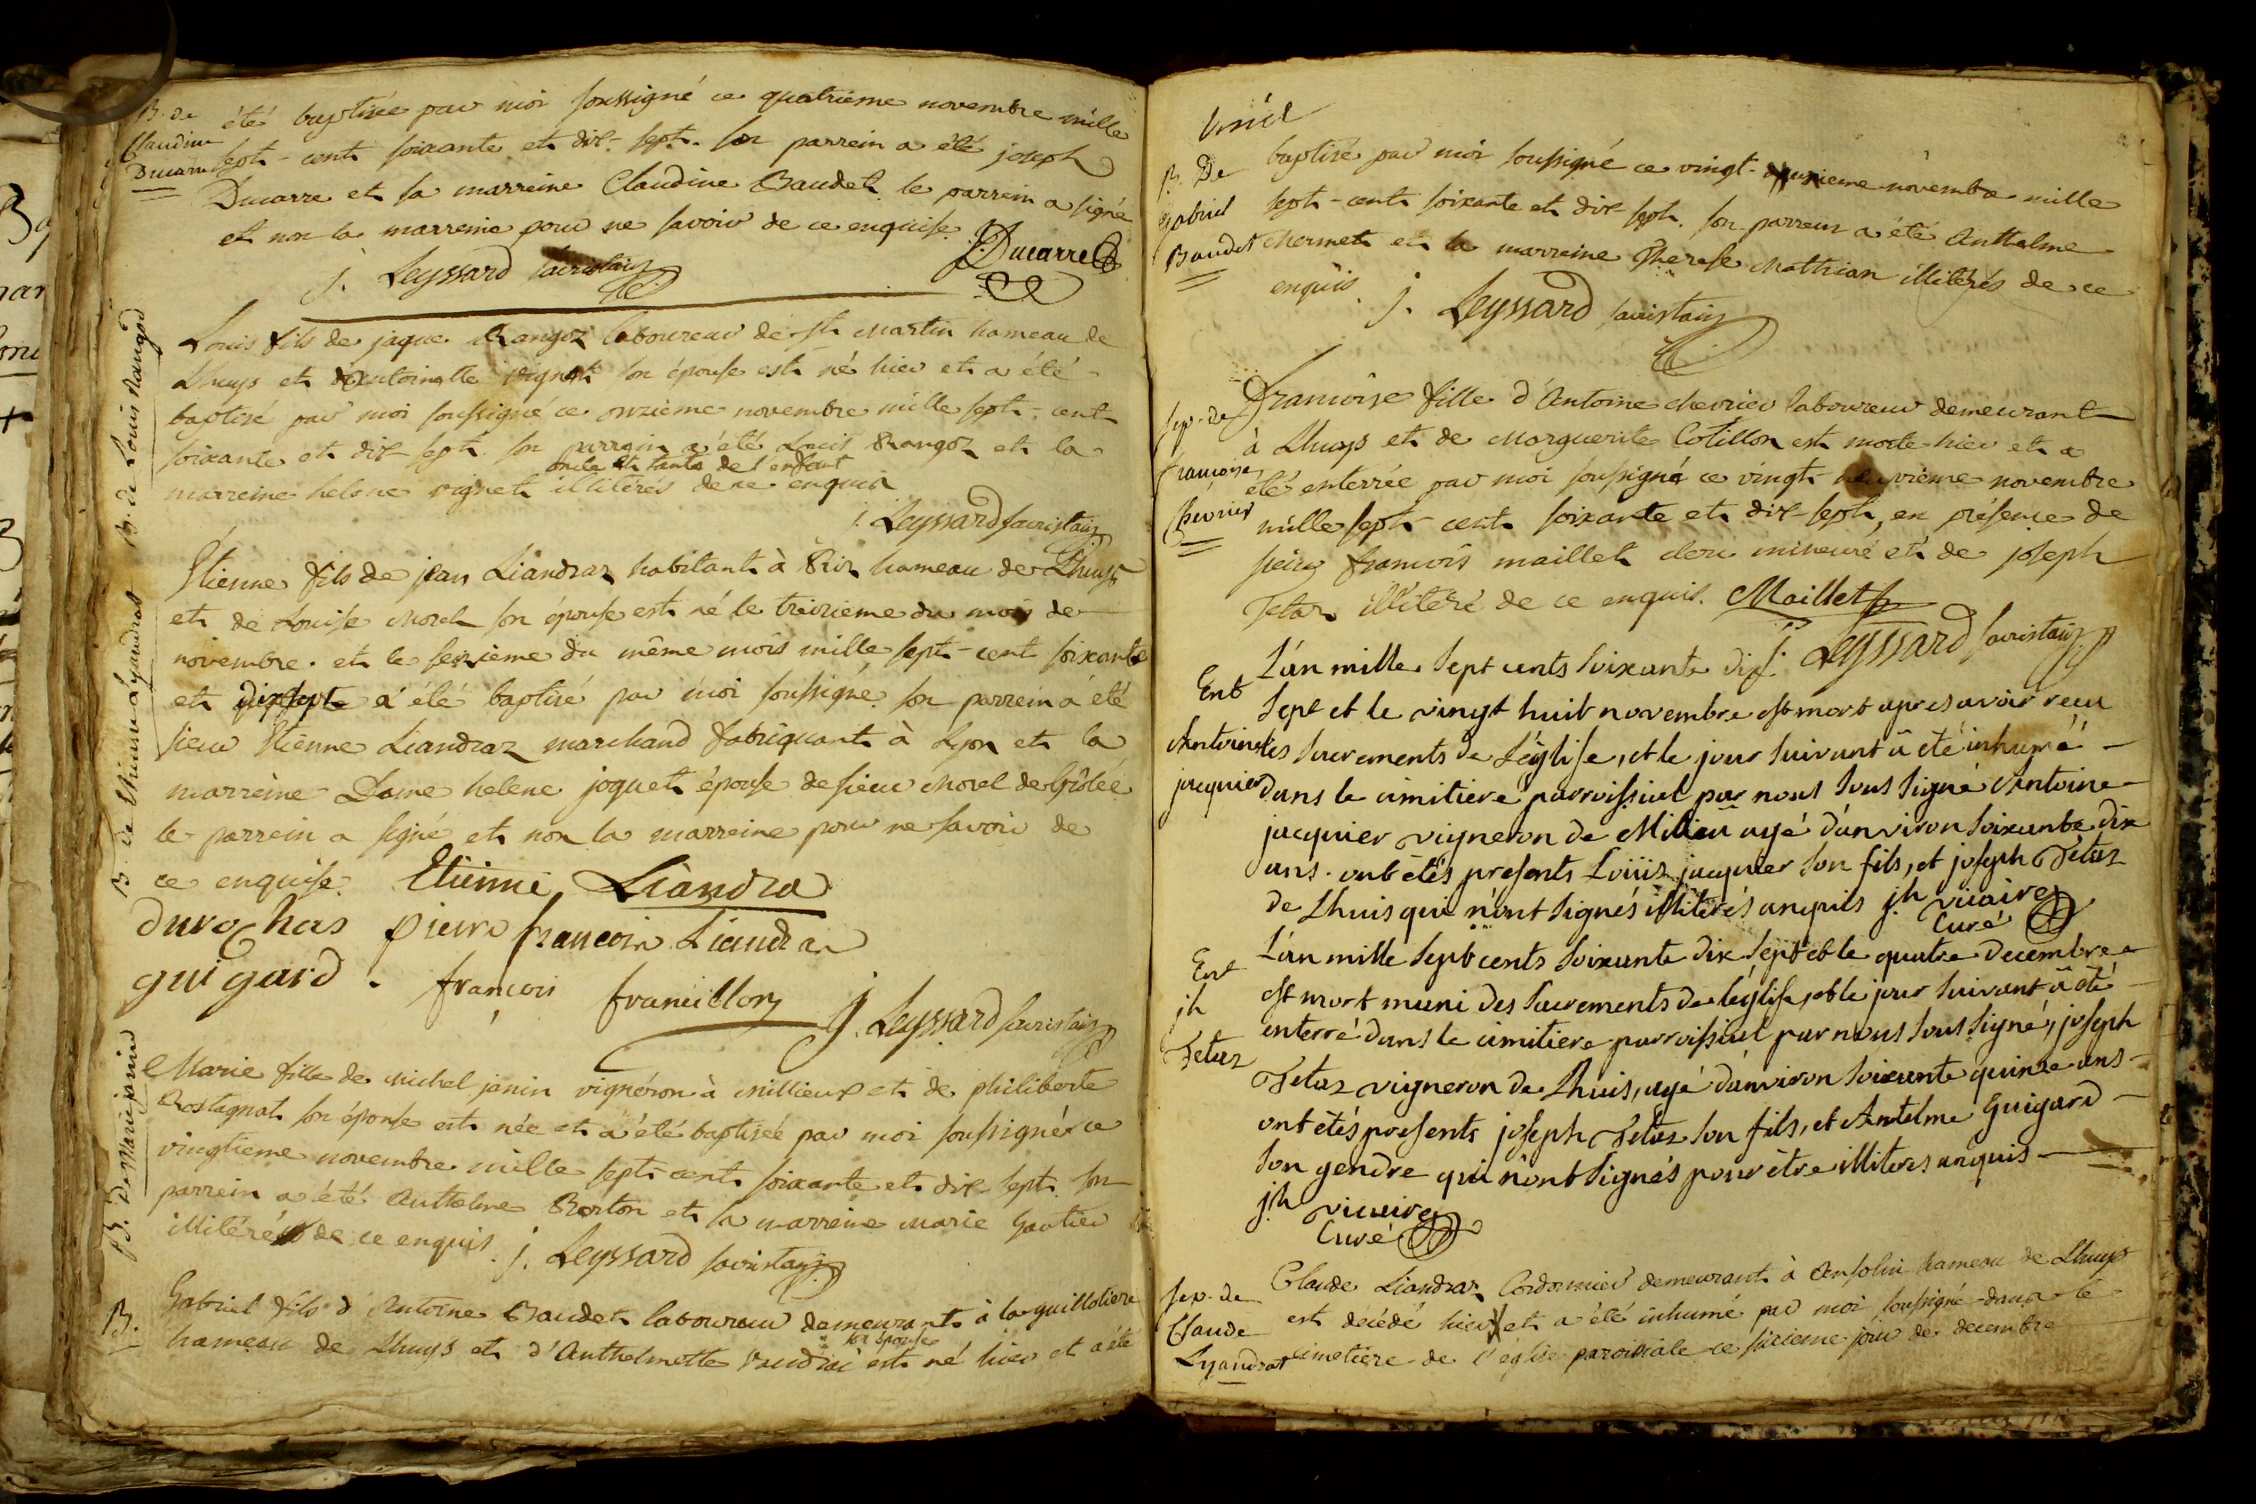 B. de
Claudine
Ducarre
été baptisée par moi soussigné ce quatrieme novembre mille
sept-cent soixante et dix-sept. son parrein a été joseph
Ducarre et sa marreine Claudine Baudet le parrein a signé
et non la marreine pour ne savoir de ce enquise.
j. Leyssard sacristain
JDucarre
B. de Louis Rangoz
Louis fils de jaque Rangoz laboureur de st Martin hameau de
Lhuys et d'Antoinette vignet son épouse est né hier et a été
baptisé par moi soussigné ce onzième novembre mille sept-cent
soixante et dix-sept son parrein a été Louis Rangoz et la
oncle et tante de l'enfant
marreine helene vignet illitérés de ce enquis
j. Leyssard sacristain
B. de Etienne Lyandraz
Etienne fils de jean Liandraz habitant à Rix hameau de Lhuys
et de Louise Morel son épouse est né le treizieme du mois de
novembre. et le seizieme du même mois mille sept-cent soixante
et dixsept a été baptisé par moi soussigné son parrein a été
sieur Etienne Liandraz marchand fabriquant à Lyon et la
marreine Dame helene joguet épouse de sieur Morel de
le parrein a signé et non la marreine pour ne savoir de
ce enquise. Etienne Liandra
durochas pierre francois Liandra
guigard . francois francillon j. Leyssard sacristain
B. De Marie janin
Marie fille de Michel janin vignéron à Millieux et de philiberte
Rostagnat son épouse est née et a été baptisée par moi soussigné ce
vingtieme novembre mille sept-cent soixante et dix-sept. son
parrein a été Anthelme Borton et sa marreine Marie Gautier
illitérés de ce enquis. j. Leyssard sacristain
B.
Gabriel fils d'Antoine Baudet laboureur demeurant à la guillotiere
son épouse
hameau de Lhuys et d'Anthelmette est né hier et a été
B. De
Gabriel
Baudet
baptisé par moi soussigné ce vingt-deuxieme novembre mille
sept-cent soixante et dix-sept. son parrein a été Anthelme
Mermet et la marreine Therese Mathian illitérés de ce
enquis. j. Leyssard sacristain
sep. de
francoise
Chevrier
Francoise fille d'Antoine chevrier laboureur demeurant
à Lhuys et de Marguerite Cotillon est morte hier et a
été enterrée par moi soussigné ce vingt-neuvième novembre
mille sept-cent soixante et dix-sept, en présence de
sieur francois maillet clerc minouré et de joseph
Tetaz illitéré de ce enquis. Maillet
j. Leyssard sacristain
Ent
Antoine
jacquier
L'an mille sept cents soixante dix
sept et le vingt huit novembre est mort apres avoir recu
les sacrements de L'église, et le jour suivant a été inhumé
dans le cimitiere parroissial par nous sous signé Antoine
jacquier vigneron de Milieu agé d'anviron soixante dix
ans. ont étés presents Louis jacquier son fils, et joseph Tetaz
de Lhuis qui n'ont signés illiterés anquis jh vicaire
Curé
Ent
jh
Tetaz
L'an mille sept cents soixante dix sept et le quatre Decembre
est mort muni des sacrements de l'église, et le jour suivant a été
enterré dans le cimitiere parroissial par nous sous signé, joseph
Tetaz vigneron de Lhuis, agé d'anviron soixante quinze ans
ont étés presents joseph Tetaz son fils, et Antelme Guigard
son gendre qui n'ont signés pour être illiteres anquis
jh vicaire
Curé
sep. de
Claude
Lyandraz
Claude Liandraz Cordonnier demeurant à Ansolin hameau de Lhuys
est décédé hier et a été inhumé par moi soussigné dans le
cimetière de l'église paroissiale ce sixieme jour de decembre